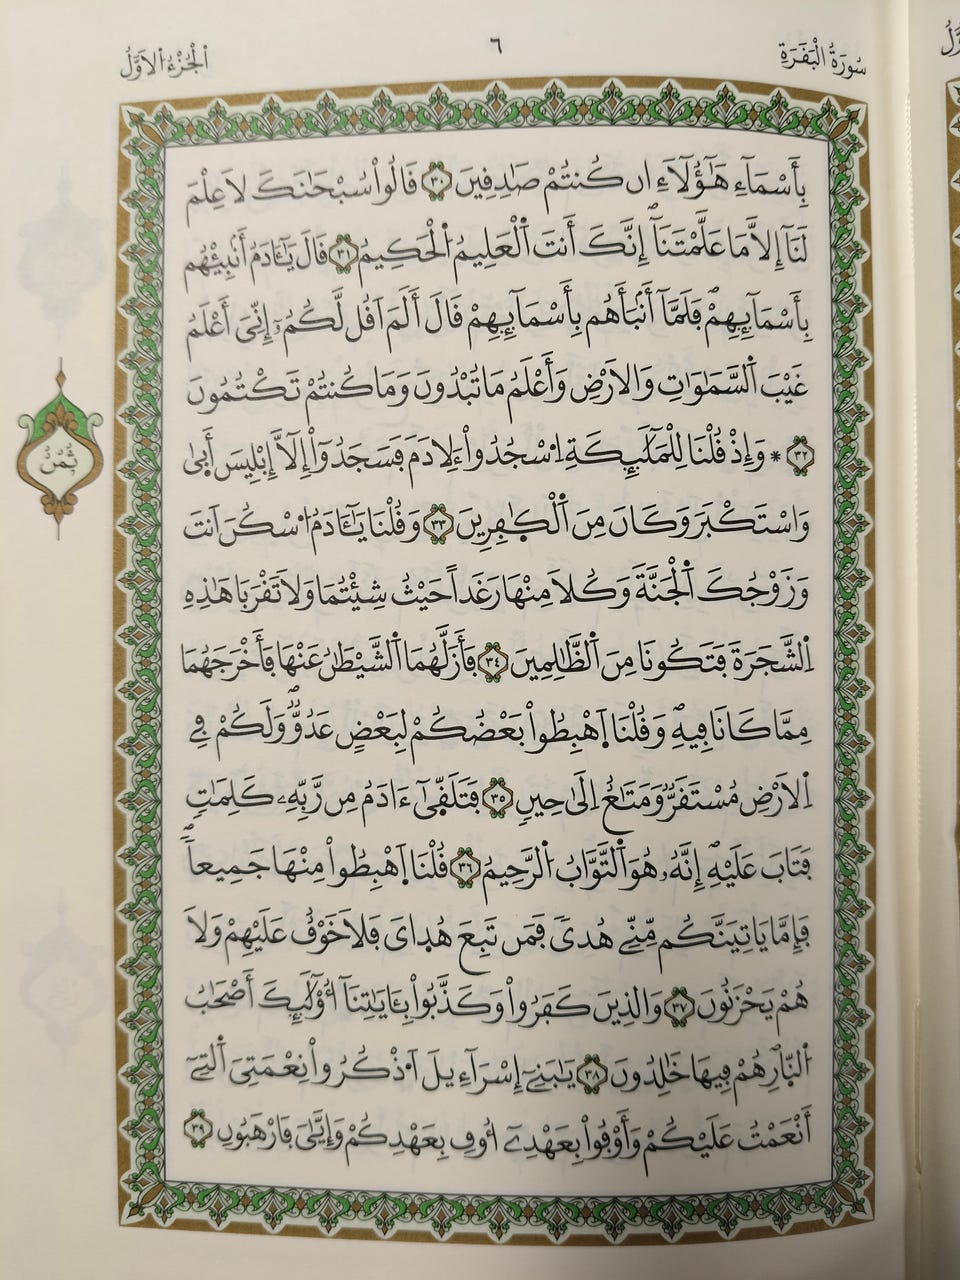 سُورَةُ الْبَقَرَةِ
٦
الْجُزْءُ الْأَوَّلُ
بِأَسْمَآءِ هَٰٓؤُلَآءِ اِن كُنتُمْ صَٰدِقِينَ ٣٠ قَالُواْ سُبْحَٰنَكَ لَا عِلْمَ
لَنَآ إِلَّا مَا عَلَّمْتَنَآ إِنَّكَ أَنتَ اَ۬لْعَلِيمُ اُ۬لْحَكِيمُ ٣١ قَالَ يَٰٓـَٔادَمُ أَنۢبِئْهُم
بِأَسْمَآئِهِمْ فَلَمَّآ أَنۢبَأَهُم بِأَسْمَآئِهِمْ قَالَ أَلَمَ اَقُل لَّكُمُۥٓ إِنِّيَ أَعْلَمُ
غَيْبَ اَ۬لسَّمَٰوَٰتِ وَالَارْضِ وَأَعْلَمُ مَا تُبْدُونَ وَمَا كُنتُمْ تَكْتُمُونَ
٣٢ * وَإِذْ قُلْنَا لِلْمَلَٰٓئِكَةِ اِ۟سْجُدُواْ ءِلَادَمَ فَسَجَدُوٓاْ إِلَّآ إِبْلِيسَ أَب۪ىٰ
وَاسْتَكْبَرَ وَكَانَ مِنَ اَ۬لْكٰ۪فِرِينَ ٣٣ وَقُلْنَا يَٰٓـَٔادَمُ اُ۟سْكُنَ اَنتَ
وَزَوْجُكَ اَ۬لْجَنَّةَ وَكُلَا مِنْهَا رَغَداً حَيْثُ شِئْتُمَا وَلَا تَقْرَبَا هَٰذِهِ
اِ۬لشَّجَرَةَ فَتَكُونَا مِنَ اَ۬لظَّٰلِمِينَ ٣٤ فَأَزَلَّهُمَا اَ۬لشَّيْطَٰنُ عَنْهَا فَأَخْرَجَهُمَا
مِمَّا كَانَا فِيهِ وَقُلْنَا اَ۪هْبِطُواْ بَعْضُكُمْ لِبَعْضٍ عَدُوٌّ وَلَكُمْ فِے
اِ۬لَارْضِ مُسْتَقَرٌّ وَمَتَٰعٌ اِلَىٰ حِينٍ ٣٥ فَتَلَقّ۪ىٰٓ ءَادَمُ مِن رَّبِّهِۦ كَلِمَٰتٍ
فَتَابَ عَلَيْهِ إِنَّهُۥ هُوَ اَ۬لتَّوَّابُ اُ۬لرَّحِيمُ ٣٦ قُلْنَا اَ۪هْبِطُواْ مِنْهَا جَمِيعاً
فَإِمَّا يَاتِيَنَّكُم مِّنِّے هُدىً فَمَن تَبِعَ هُد۪ايَ فَلَا خَوْفٌ عَلَيْهِمْ وَلَا
هُمْ يَحْزَنُونَ ٣٧ وَالذِينَ كَفَرُواْ وَكَذَّبُواْ بِـَٔايَٰتِنَآ أُوْلَٰٓئِكَ أَصْحَٰبُ
اُ۬لنّ۪ارِ هُمْ فِيهَا خَٰلِدُونَ ٣٨ يَٰبَنِےٓ إِسْرَآءِيلَ اَ۟ذْكُرُواْ نِعْمَتِيَ اَ۬لتِےٓ
أَنْعَمْتُ عَلَيْكُمْ وَأَوْفُواْ بِعَهْدِےٓ أُوفِ بِعَهْدِكُمْ وَإِيَّٰيَ فَارْهَبُونِ ٣٩
ثُمُنُ